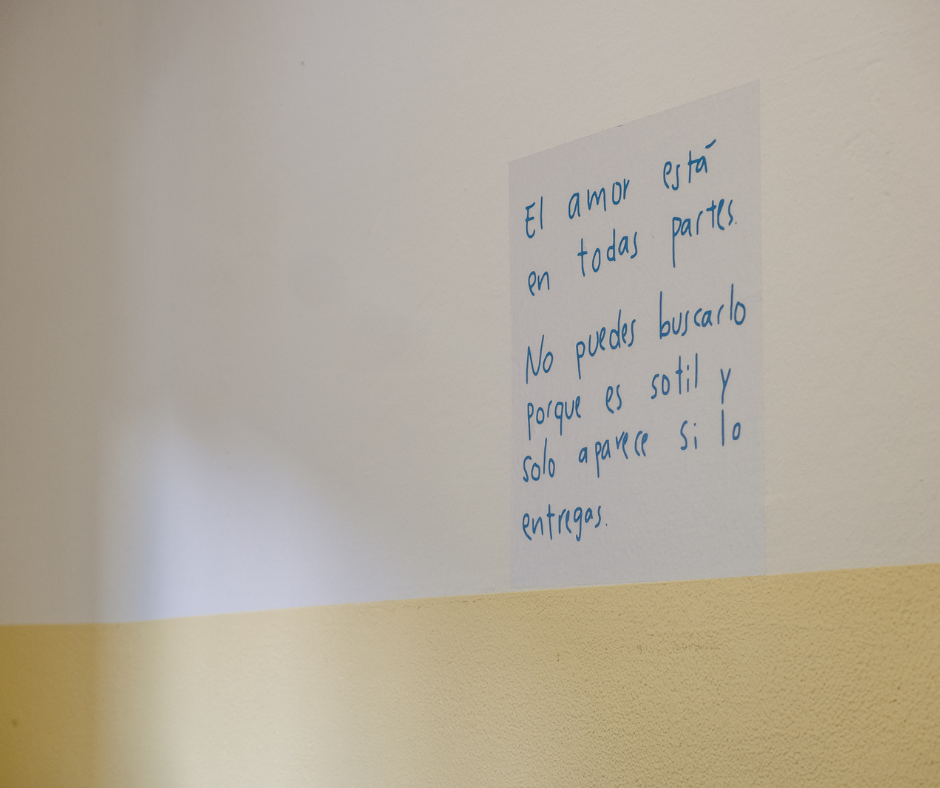 El amor está
en todas partes.
No puedes buscarlo
porque es sotil y
solo aparece si lo
entregas.